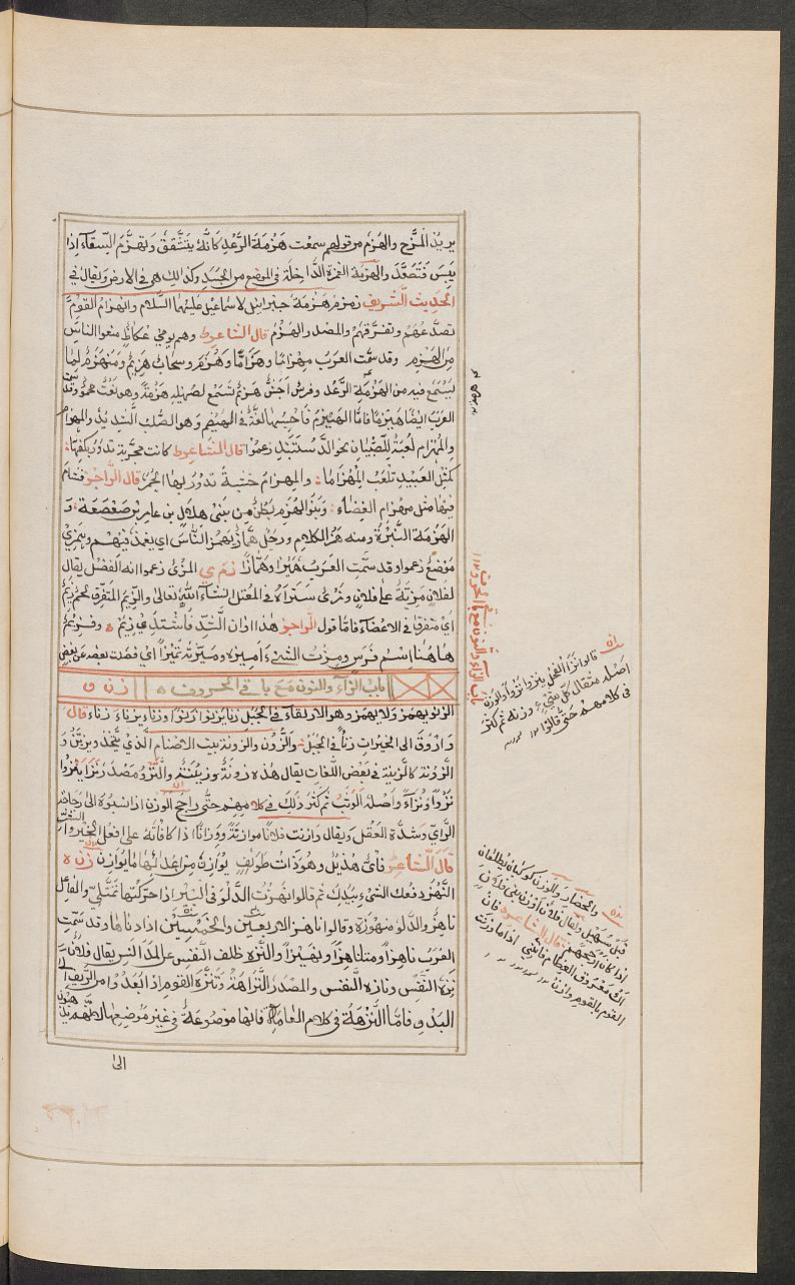 يريد المزح والهزم من قولهم سمعت هزمة الرعد كانه يتشقق وتهزم السقاء اذا
يبس فتصعد والهزمة الغمزة الداخلة في الموضع من الجسد وكذلك هي في الارض ويقال في
الحديث الشريف زمزم هزمة جبرائيل لاسماعيل عليهما السلام وانهزام القوم
تصدعهم وتفرقهم والمصدر الهزم قال الشاعر وهم يومي عكاظ منعوا الناس
من الهزم وقد سمت العرب مهزاما وهزاما وهزيم وسحاب هزيم ومنهزم لما
يستمع فيه من الهزمة الرعد وفرس اجش هزيم تسمع لصهيله هزمة وهو نعت محمود وقد سمت
العرب ايضا هيزما فاما الهيزم فاحسبها لغة في الهيصم وهو الصلب الشديد والمهزام
والمهزام لعبة للصبيان نحو الدستبند زعموا قال الشاعر كانت مجربة تدور بكفها
كمثل العبيد تلعب المهزاما والمهزام خشبة تدور بها الجمر قال الراجز فشام
فيها مثل مهزام الغضاء وبنو الهزم بطن من بني هلال بن عامر بن صعصعة و
الهزمة النبرة ومنه همز الكلام ورجل هماز يهمز الناس اي يغمز فيهم وهمزى
موضع زعموا وقد سمت العرب هميزا وهمازا زمي المزى زعموا انه الفضل يقال
لفلان مزية على فلان وترى ستراه في المعتل انشاء الله تعالى والزيم المتفرق لحم زيم
اي متفرقا في الاعضاء فاما قول الراجز هذا اوان الشد فاشتدي زيم وفزيم
هاهنا اسم فرس ومزت الشيء اميزه وميزته تمييزا اي فصلت بعضه عن بعض
باب الزاء والنون مع باقي الحروف زن و
الزنو يهمز ولا يهمز وهو الارتقاء في الجبل زنا يزنو زنوا وزنا يزناء زناء قال
وارزق الى الخيرات زنأ في الجبل والزون والزونة بيت الاصنام الذي يتخذ ويزين و
الزونة كالزينة في بعض اللغات يقال هذه زونة وزينة والنزو مصدر نزا ينزوا
نزوا ونزاء واصله الوثب ثم كثر ذلك في كلامهم حتى راجح الوزن اذا نسبوه الى رجاحة
الراي وشدة العقل ويقال وازنت فلانا موازنة ووزانا اذا كافاته على فعل الخير والشر
قال الشاعر فاي هذيل وهو ذات طوائف يوازن من اعدائها ما يوازن زن ه
النهز دفعك الشيء بيدك ثم قالوا نهزت الدلو في البئر اذا حركتها تمتلي والفاعل
ناهز والدلو منهوزة وقالوا ناهز الاربعين والخمسين اذا داناها وقد سمت
العرب ناهزا ومناهزا ونهيزا والنزه ظلف النفس عن المدانس يقال فلان
نزه النفس ونازه النفس والمصدر النزاهة وتنزه القوم اذا بعدوا من الريف الى
البدو فاما النزهة في كلام العامة فانها موضوعة في غير موضعها
الى
باب الزاء والنون مع باقي الحروف
قالوا نزا الفحل ينزوا نزوا والوزن
اصله مثقال كل شيء وزنه ثم كثر
في كلامهم حتى قالوا
والحضار والوزن كوكبان يطلعان
قبل سهيل ويقال فلان اوزن بني فلان
اذا كان ارجحهم قال الشاعر فان
اك معروق العظام فانني اذا ما وزنت
القوم بالقوم وازن